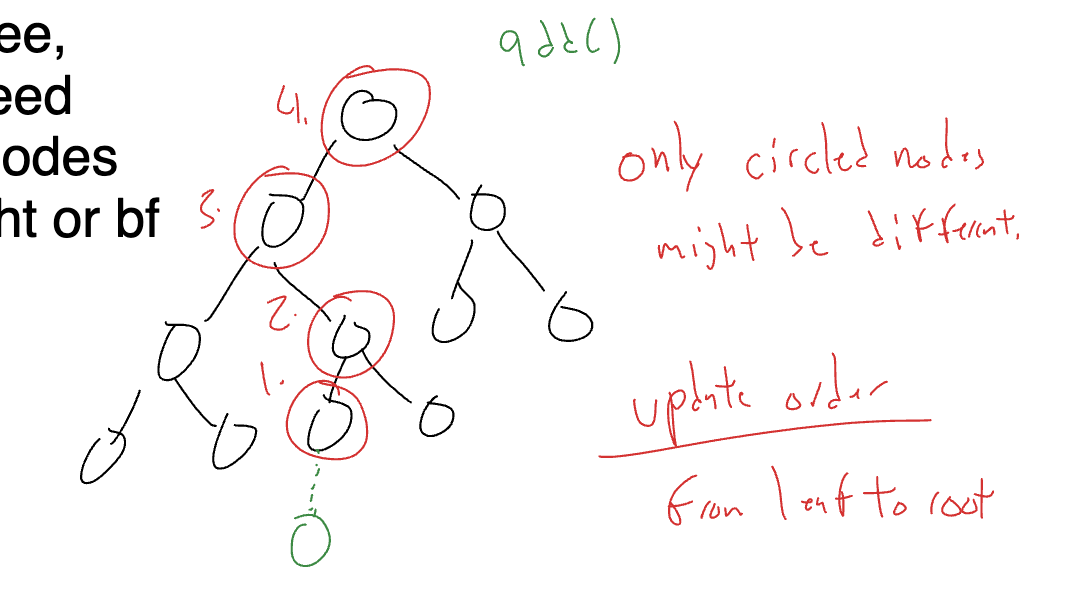 ee,
eed
odes
ht or bf
add()
4.
3.
2.
1.
only circled nodes
might be different.
update order
from leaf to root